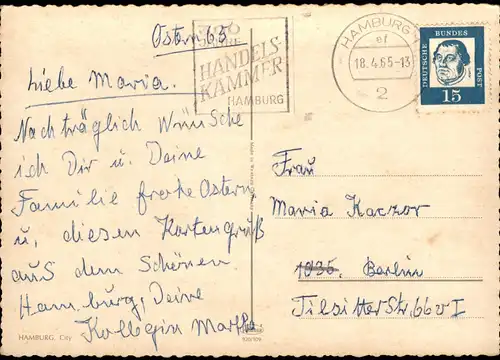 Ostern 65
JAHRE
HANDELS
KAMMER
HAMBURG
HAMBURG
ef
18.4.65-13
2
DEUTSCHE BUNDES POST
15
Liebe Maria.
Nachträglich Wünsche
ich Dir u. Deine
Familie frohe Ostern,
u, diesen Kartengruß
aus dem Schönen
Hamburg, Deine
Kollegin Martha
Frau
Maria Kaczor
1035. Berlin
Tilsitter Str, 66 v I
HAMBURG, City